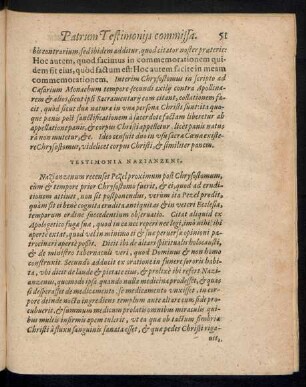 Patrum Testimonijs commissa. 51
bis contrarium, sed ibidem additur, quod citator auster præterit:
Hoc autem, quod facimus in commemorationem qui-
dem fit eius, quòd factum est: Hoc autem facite in meam
commemorationem. Interim Chrysostomus in scripto ad
Cæsarium Monachum tempore secundi exilij contra Apollina-
rem & alios, sicut ipsi Sacramentarij eam citant, collationem fa-
cit, quòd sicut dua natura in vna persona Christi sunt: ita quo-
que panis post sanctificationem à sacerdote factam liberatur ab
appellatione panis, & corpus Christi appelletur, licet panis natu-
ra non mutetur, &c. Ideo censuit duo in vsu sacra Cœnæ existe-
re Chrysostomus, videlicet corpus Christi, & similiter panem.
TESTIMONIA NAZIANZENI.
Nazianzenum recenset Pezel proximum post Chrysostomum,
cùm & tempore prior Chrysostomo fuerit, & ei, quod ad erudi-
tionem attinet, non sit postponendus, verùm ita Pezel prodit,
quàm sit ei bene cognita erudita antiquitas & in veteri Ecclesia,
temporum ordine succedentium obseruatio. Citat aliquid ex
Apologetico fuga sua, quod in eâ nec reperi nec legi, imò nihil ibi
aperti extat, quod vel in minimo ei & suo ipsius opinioni pa-
trocinari aperte possit. Dicit ibi de altari spiritualis holocausti,
& de ministro tabernaculi veri, quod Dominus & non homo
construxit. Secundò adducit ex oratione in funere sororis habi-
ta, vbi dicit de laude & pietate eius, & prolixè ibi refert Nazi-
anzenus, quomodo in ægritudine, cùm nulla medicina prodesset, & qua-
si desperasset de medicamento, se medicamento vulsisset, in cor-
pore deinde noctu ingrediens templum ante altare cum fide pro-
cubuerit, & summum medicum probatis omnibus miraculis qui-
bus multis infirmis opem tulerit, vt ea qua ab tactum fimbriæ
Christi à fluxu sanguinis sanata esset, & qua pedes Christi riga-
uit,